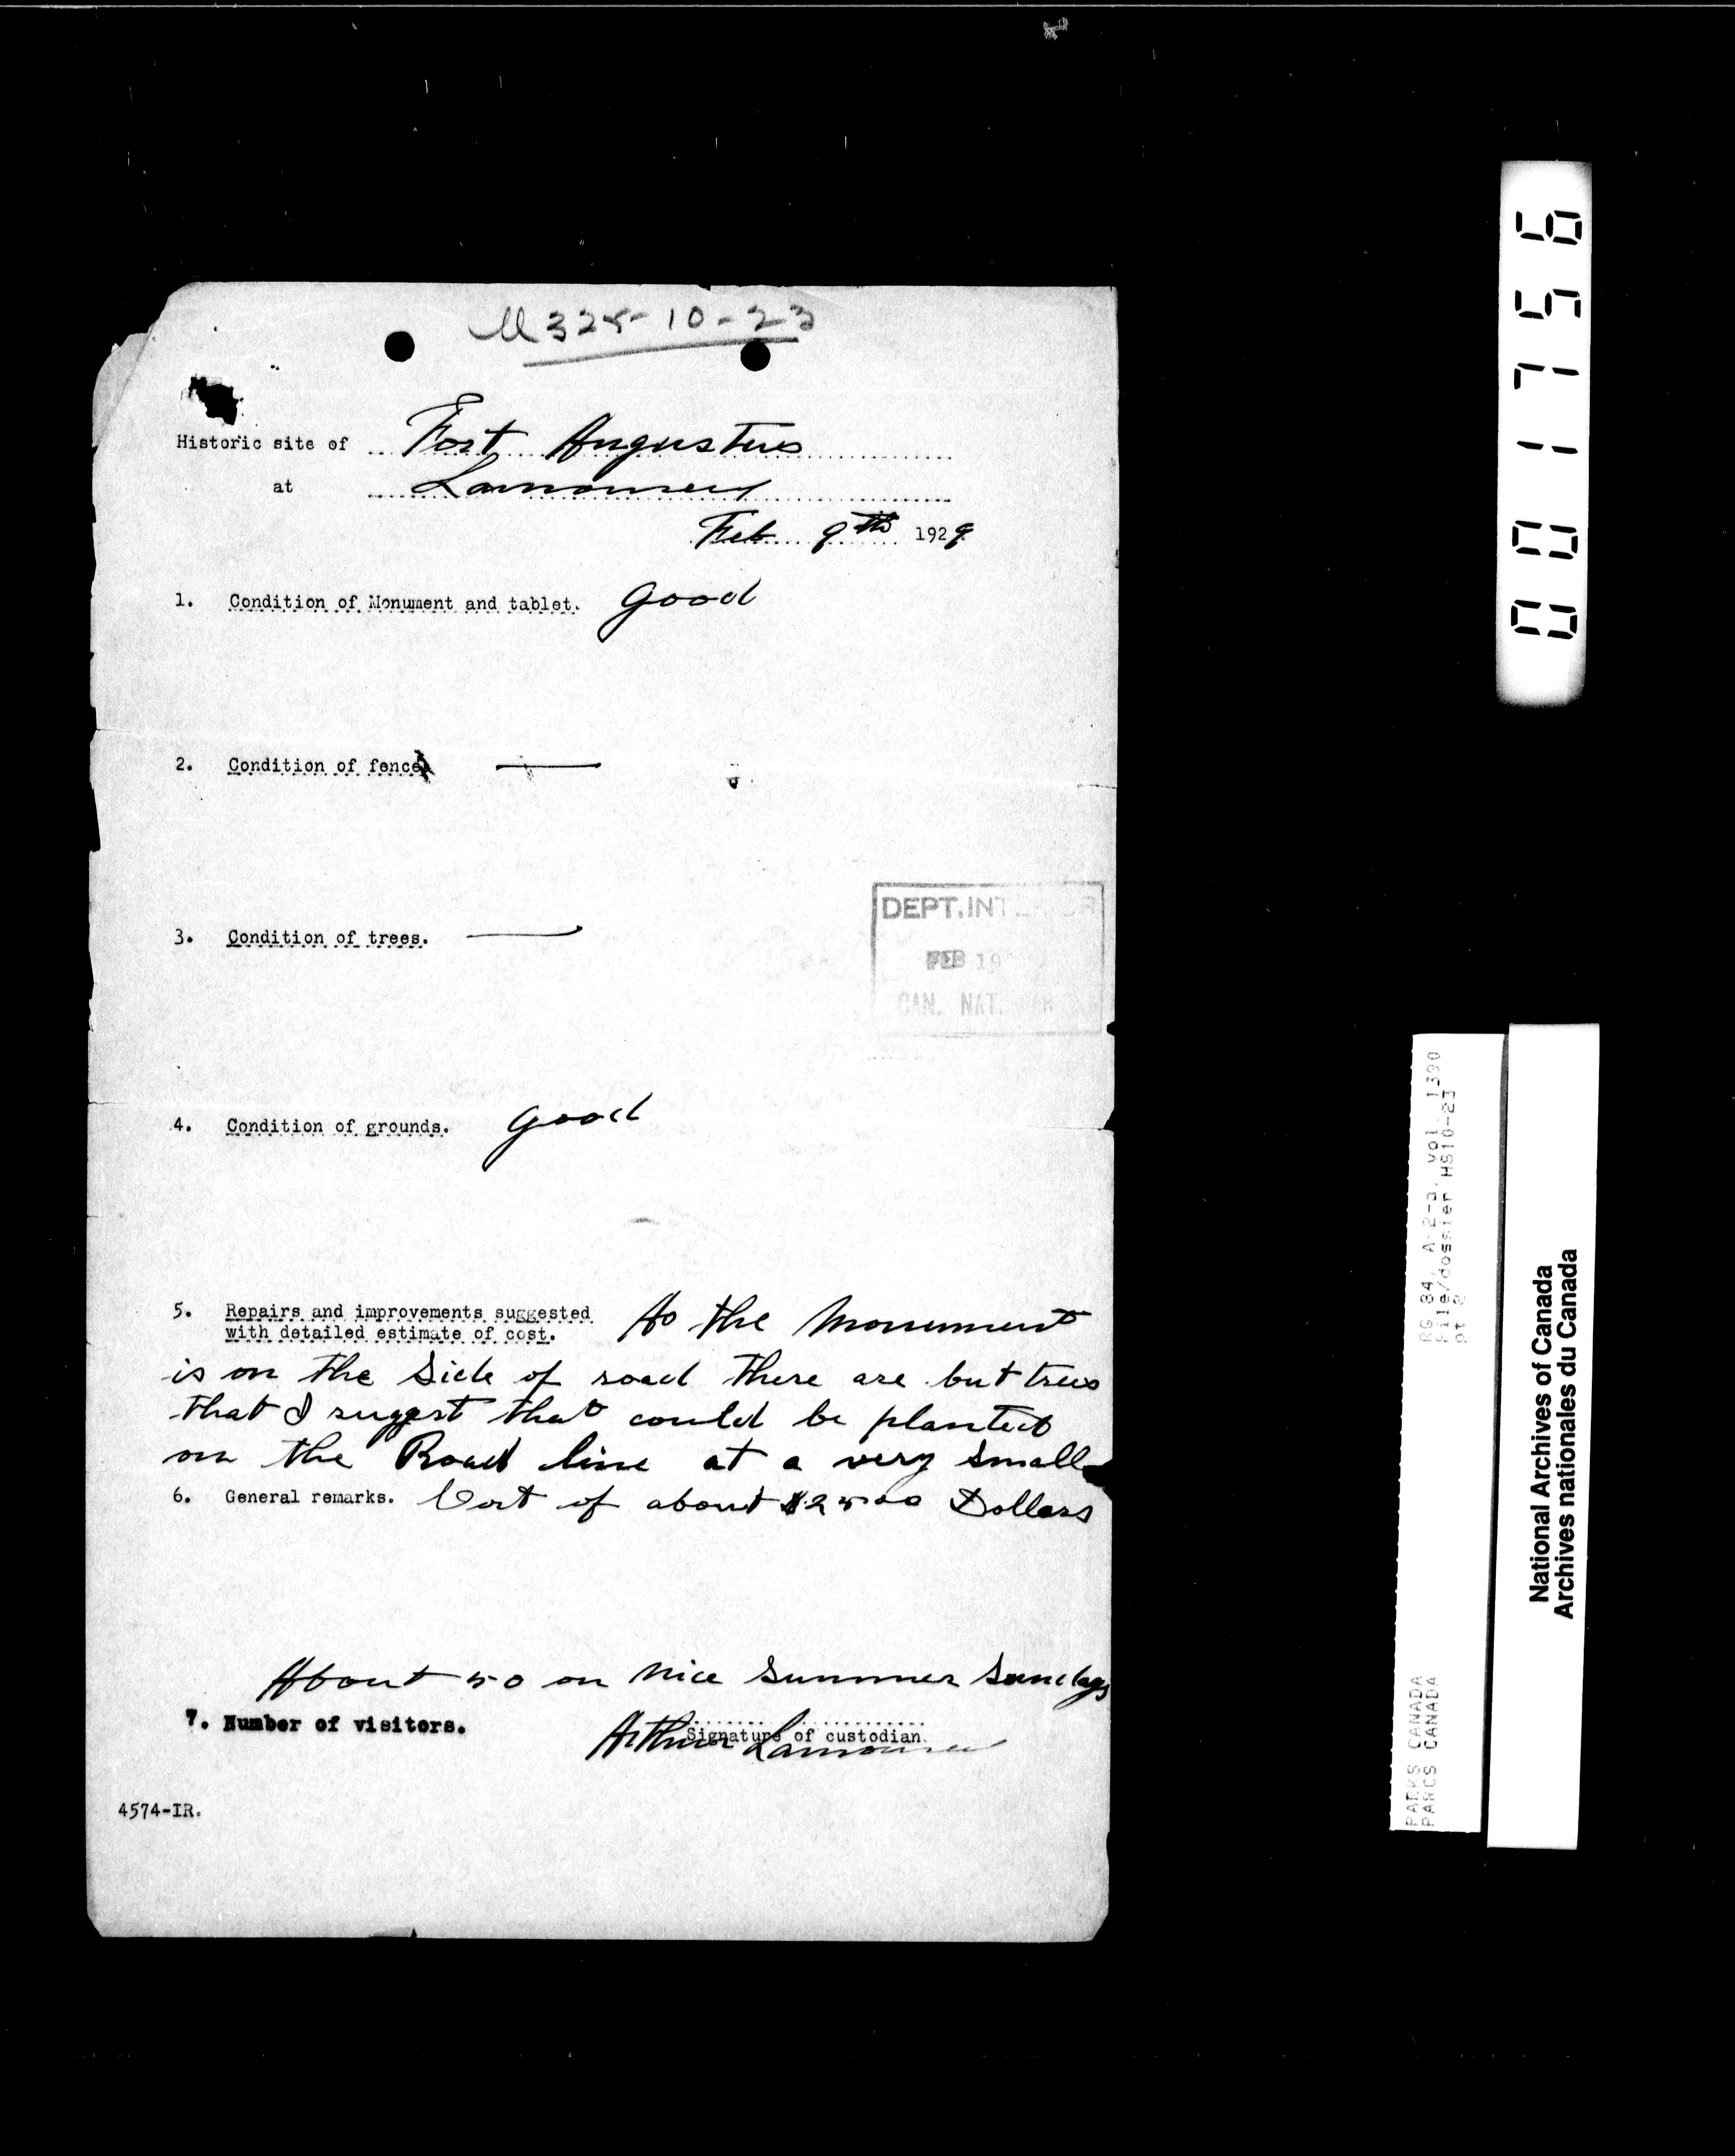 M325-10-23
Historic site of Fort Angustus
at Lamoureux
Feb 9th 1929
1. Condition of Monument and tablet. good
2. Condition of fence
3. Condition of trees.
DEPT. INT
FEB 19
CAN. NAT. PAR
4. Condition of grounds. good
5. Repairs and improvements suggested
with detailed estimate of cost. As the Monument
is on the Side of road there are but trees
that I suggest that could be planted
on the Road line at a very Small
6. General remarks. Cost of about $25 00 Dollars
About 50 on nice Summer Sundays
7. Number of visitors.
Signature of custodian.
Arthur Lamoureux
4574-IR.
001756
RG 84, A-2-a, vol. 1390
File/dossier HS10-23
pt 2
PARKS CANADA
PARCS CANADA
National Archives of Canada
Archives nationales du Canada